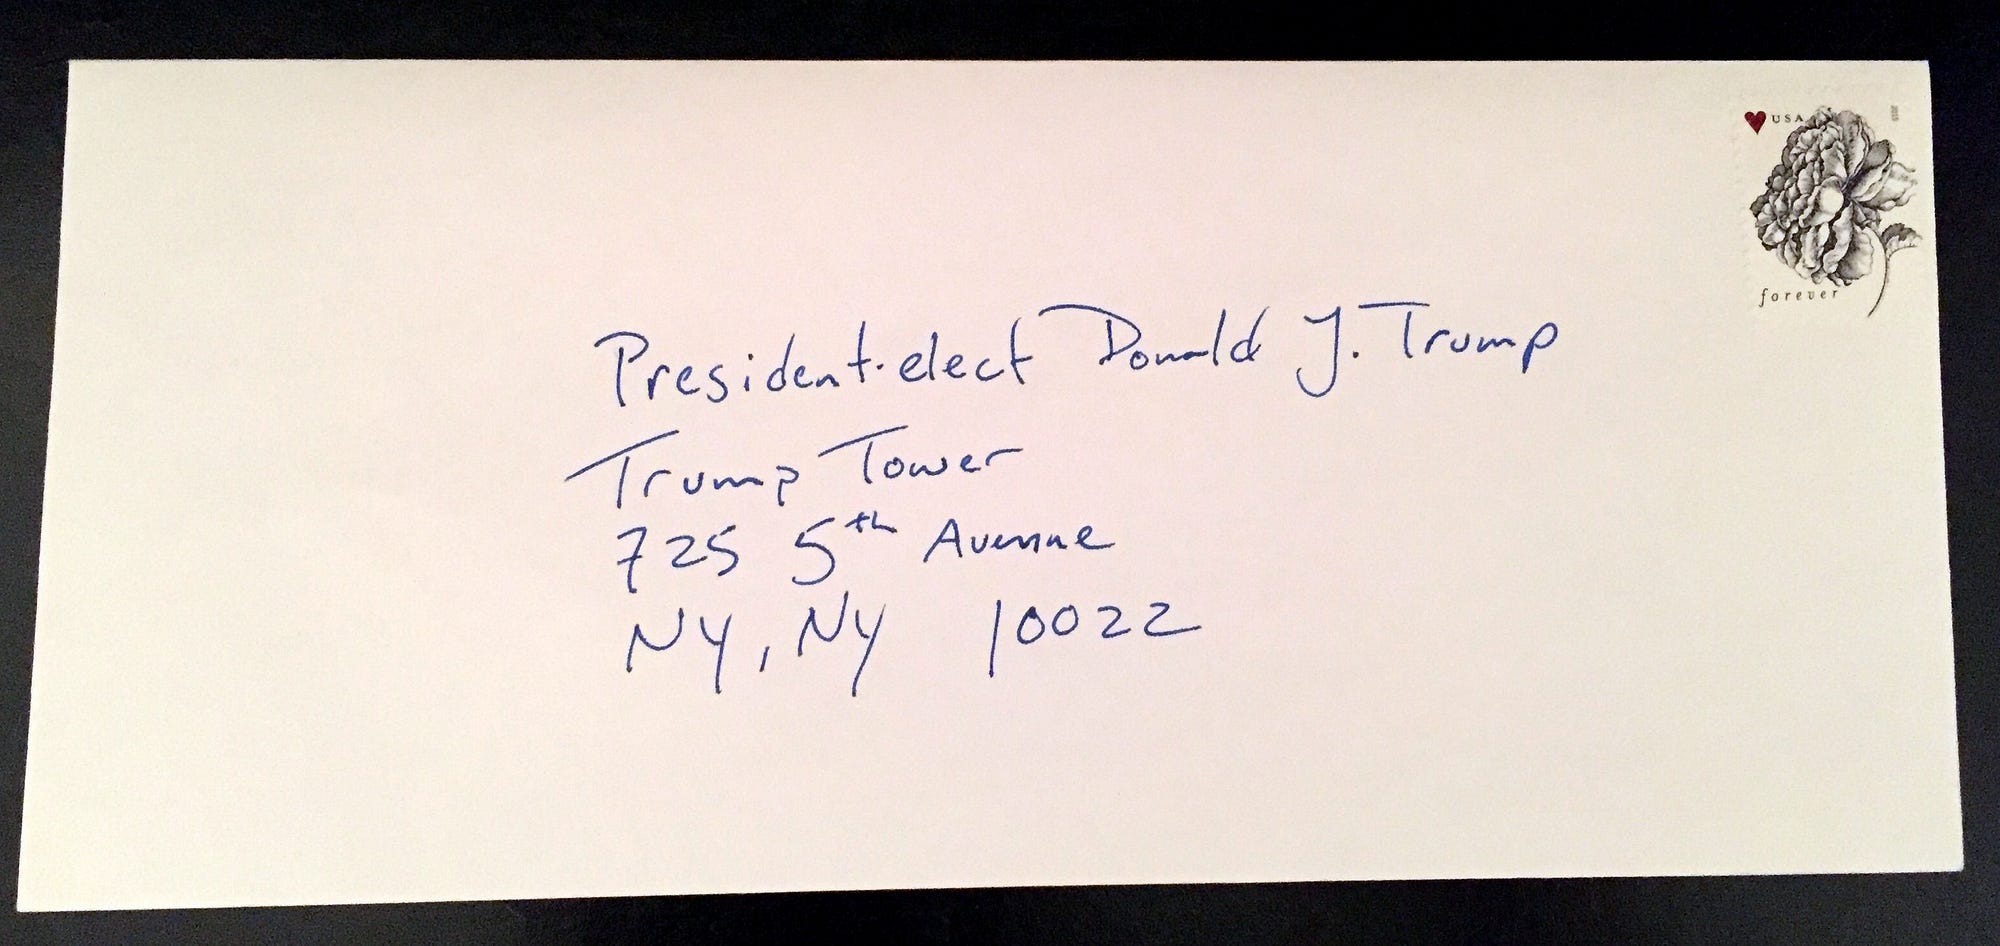 USA
2015
forever
President-elect Donald J. Trump
Trump Tower
725 5th Avenue
NY, NY 10022